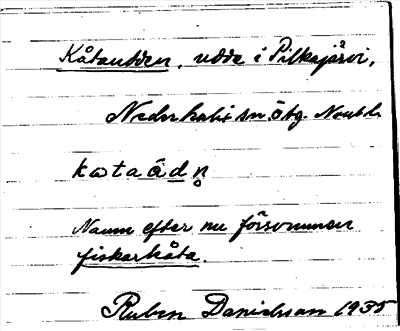 Kåtaudden, udde i Pilkajärvi,
Nederkalix sn ö btg. Norrb. l.
kataådn̥
Namn efter nu försvunnen
fiskarkåta.
Ruben Danielsson 1935